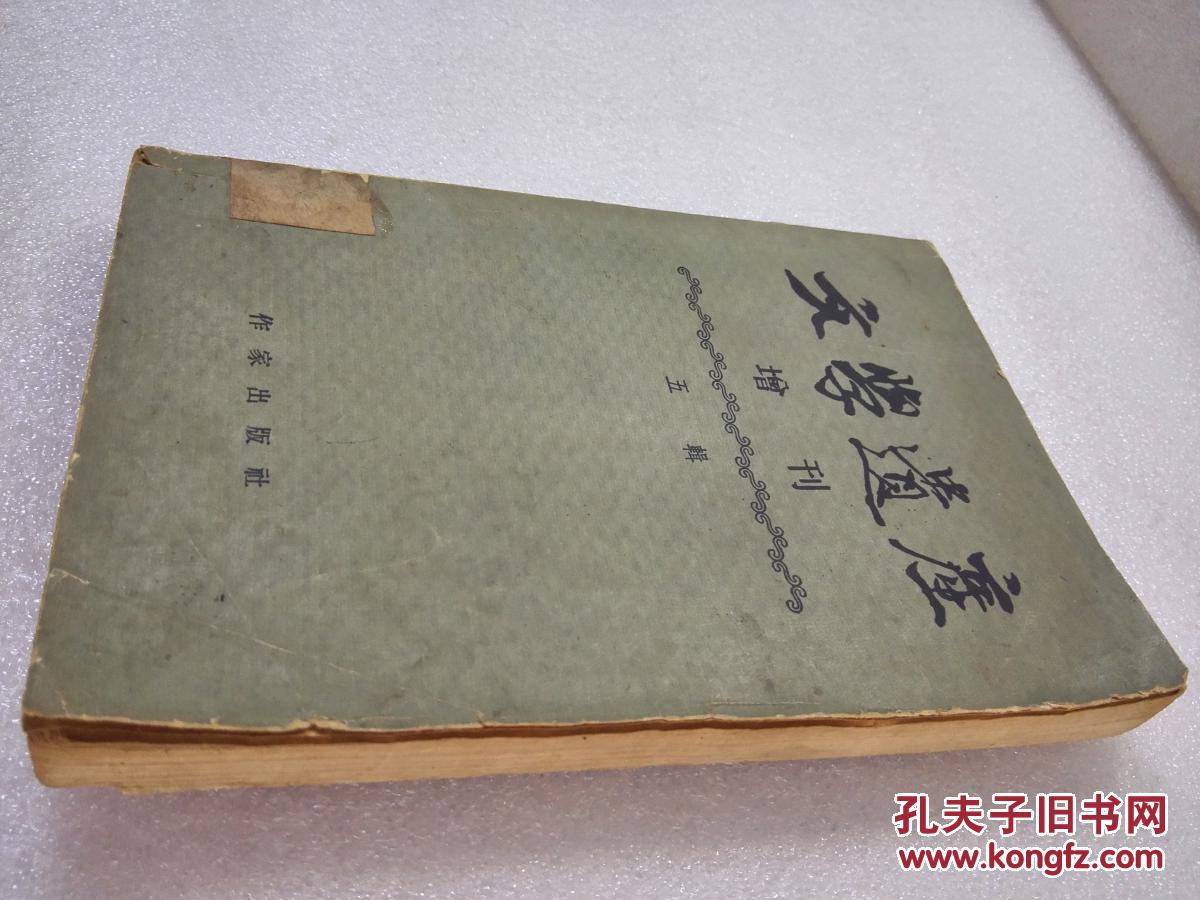 文學遺產
增刊
五輯
作家出版社
孔夫子旧书网
www.kongfz.com